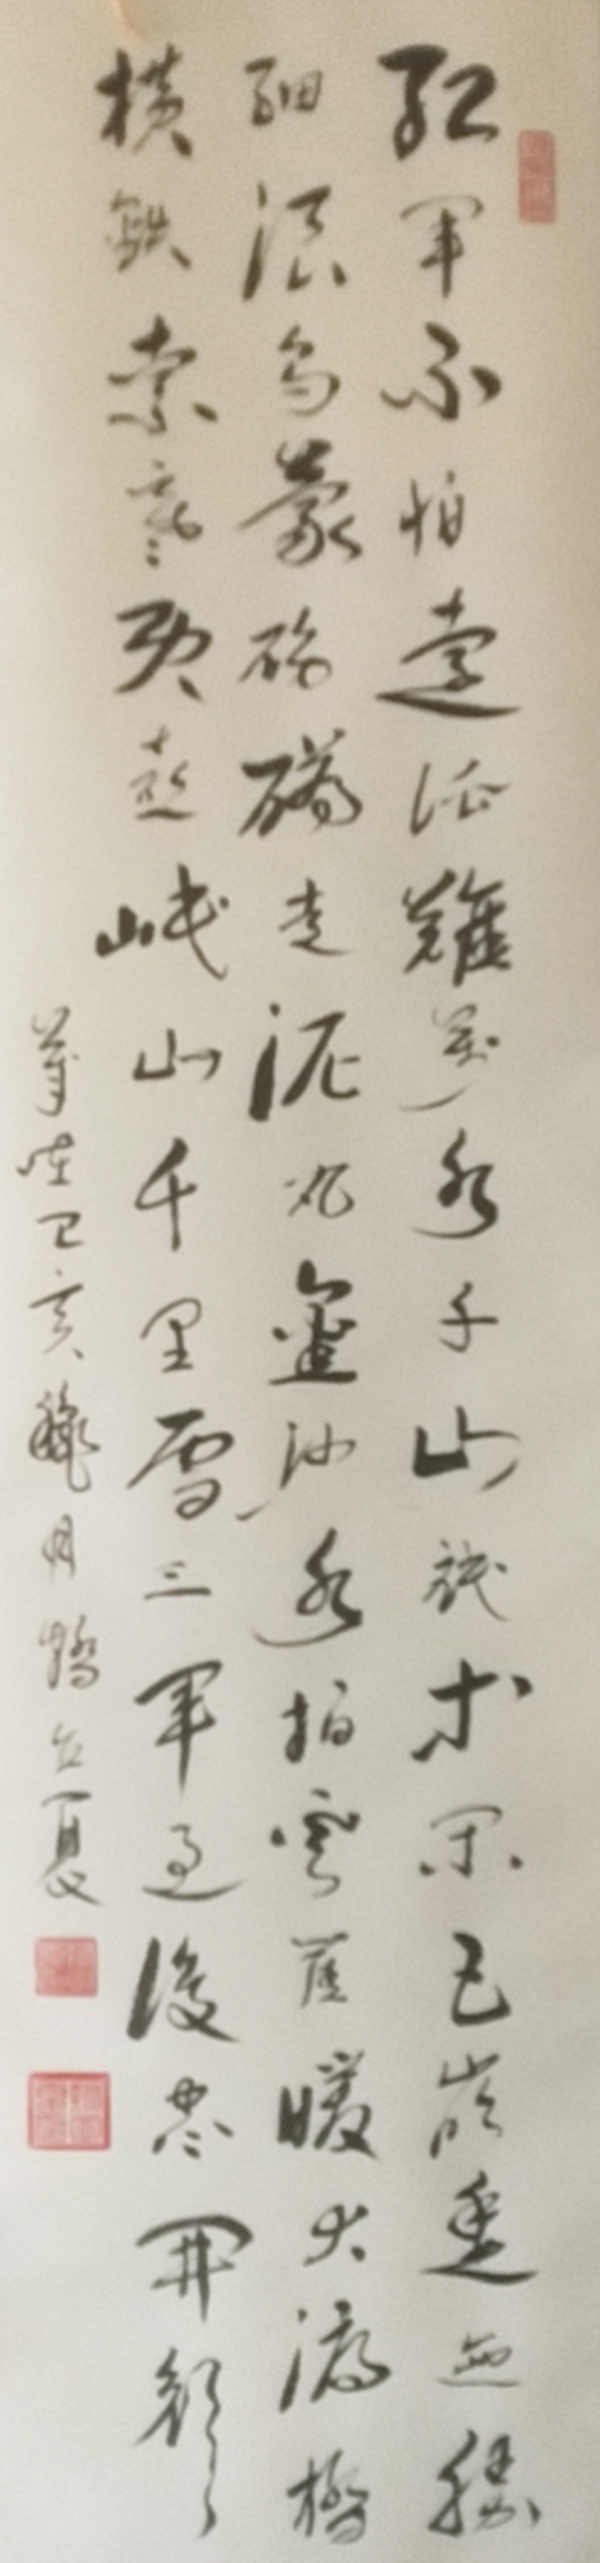 紅軍不怕遠征難萬水千山祇等閒五嶺逶迤騰
細浪烏蒙磅礴走泥丸金沙水拍雲崖暖大渡橋
橫鐵索寒更喜岷山千里雪三軍過後盡開顏
己亥龝月 立夏